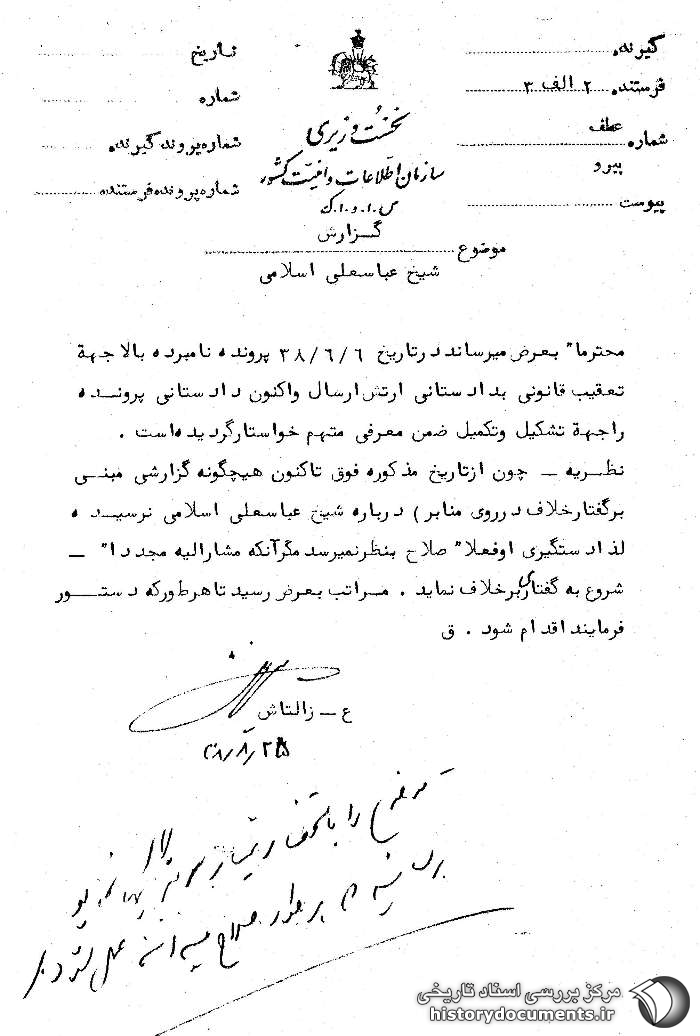 گیرنده
فرستنده ۲ الف ۳
شماره عطف
پیرو
پیوست
نخست وزیری
سازمان اطلاعات وامنیت کشور
س.ا.و.ا.ک
تاریخ
شماره
شماره پرونده گیرنده
شماره پرونده فرستنده
گزارش
موضوع
شیخ عباسعلی اسلامی
محترما" بعرض میرساند درتاریخ ۳۸/۶/۶ پرونده نامبرده بالا جهة
تعقیب قانونی بدادستانی ارتش ارسال واکنون دادستانی پرونده
راجهة تشکیل وتکمیل ضمن معرفی متهم خواستارگردیده است .
نظریه – چون ازتاریخ مذکوره فوق تاکنون هیچگونه گزارشی مبنی
برگفتارخلاف درروی منابر) درباره شیخ عباسعلی اسلامی نرسیده
لذا دستگیری اوفعلا" صلاح بنظرنمیرسد مگرآنکه مشارالیه مجددا" –
شروع به گفتارهای برخلاف نماید . مراتب بعرض رسید تاهرطورکه دستور
فرمایند اقدام شود . ق
ع – زالتاش
موضوع را باستحضار تیمسار
برسانید هر طور صلاح میدانند عمل شود
مرکز بررسی اسناد تاریخی
historydocuments.ir